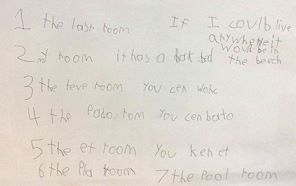 1 the last room If I coulb live
anywhere it
would be in
the beech
2nd room it has a bat bed
3 the teve room you cen wohc
4 the Pado rom you cen bato
5 the et room you ken et
6 the Pla room 7 the Pool room